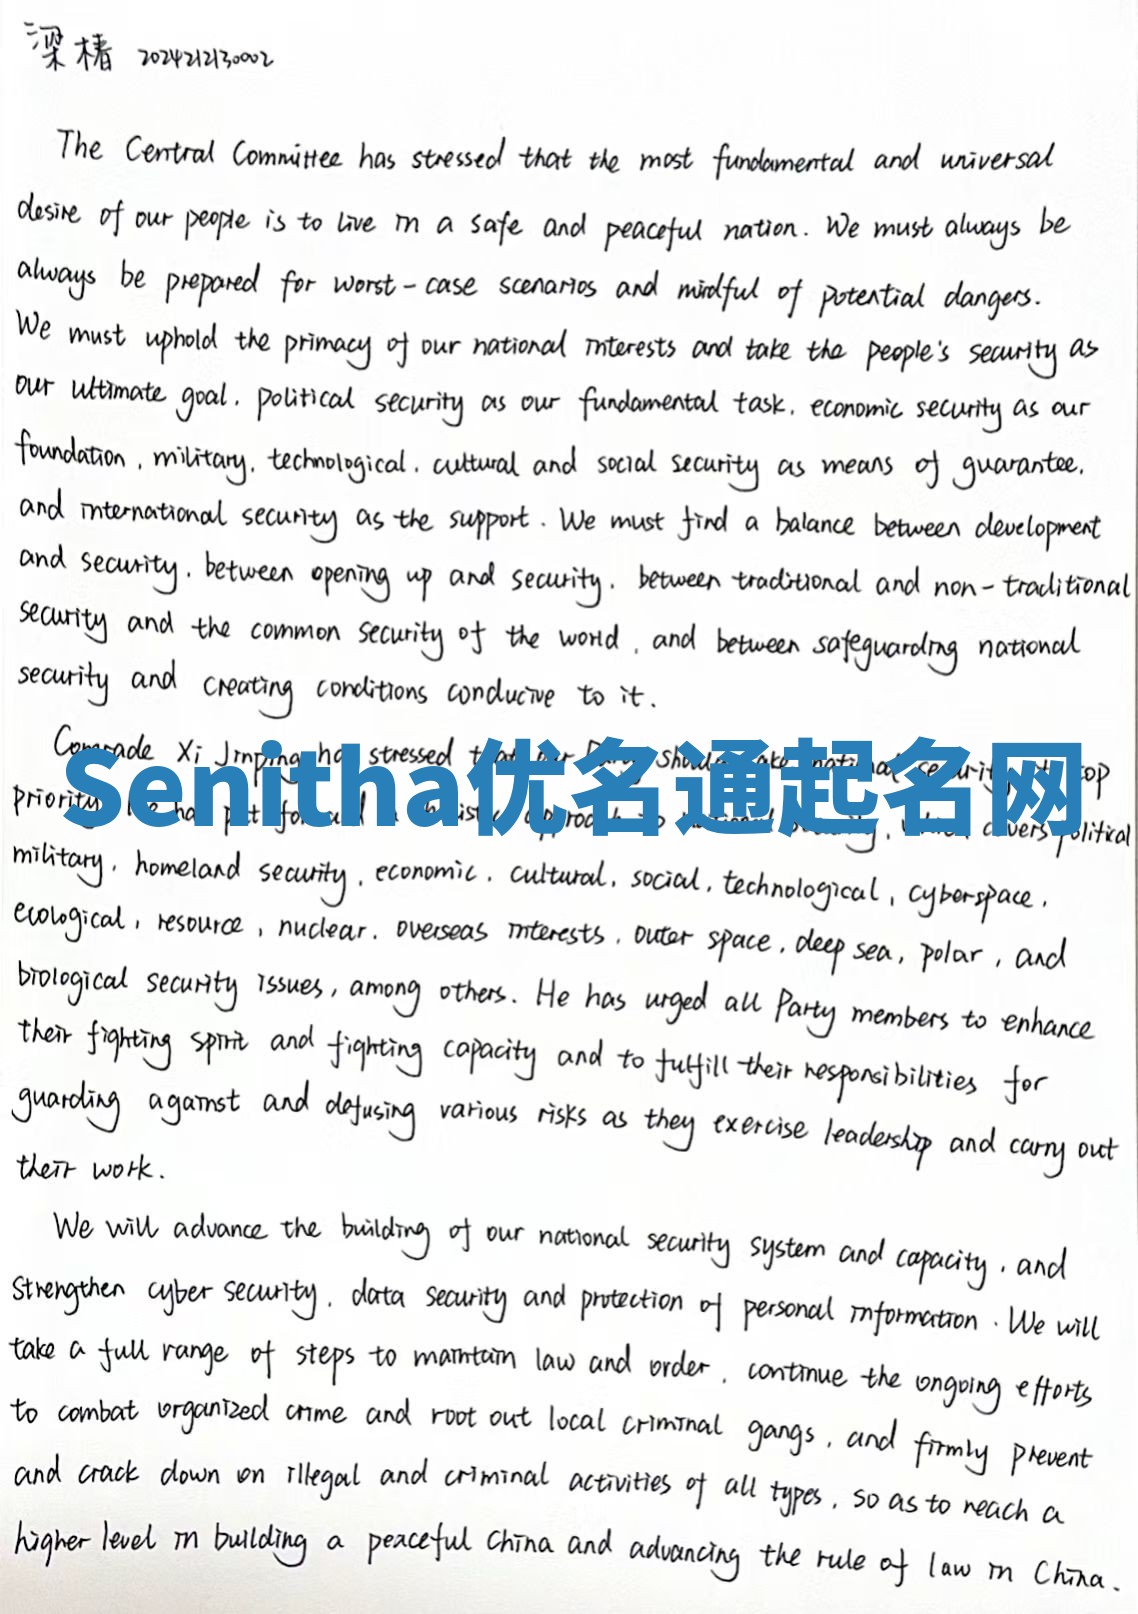 梁椿 2024212130002
The Central Committee has stressed that the most fundamental and universal
desire of our people is to live in a safe and peaceful nation. We must always be
always be prepared for worst-case scenarios and mindful of potential dangers.
We must uphold the primacy of our national interests and take the people's security as
our ultimate goal, political security as our fundamental task, economic security as our
foundation, military, technological, cultural and social security as means of guarantee,
and international security as the support. We must find a balance between development
and security, between opening up and security, between traditional and non-traditional
security and the common security of the world, and between safeguarding national
security and creating conditions conducive to it.
Comrade Xi Jinping has stressed that our Party should take national security top
Senitha优名通起名网
priority. He has put forward a holistic approach to national security, which covers political
military, homeland security, economic, cultural, social, technological, cyberspace,
ecological, resource, nuclear, overseas interests, outer space, deep sea, polar, and
biological security issues, among others. He has urged all Party members to enhance
their fighting spirit and fighting capacity and to fulfill their responsibilities for
guarding against and defusing various risks as they exercise leadership and carry out
their work.
We will advance the building of our national security system and capacity, and
strengthen cyber security, data security and protection of personal information. We will
take a full range of steps to maintain law and order, continue the ongoing efforts
to combat organized crime and root out local criminal gangs, and firmly prevent
and crack down on illegal and criminal activities of all types, so as to reach a
higher level in building a peaceful China and advancing the rule of law in China.